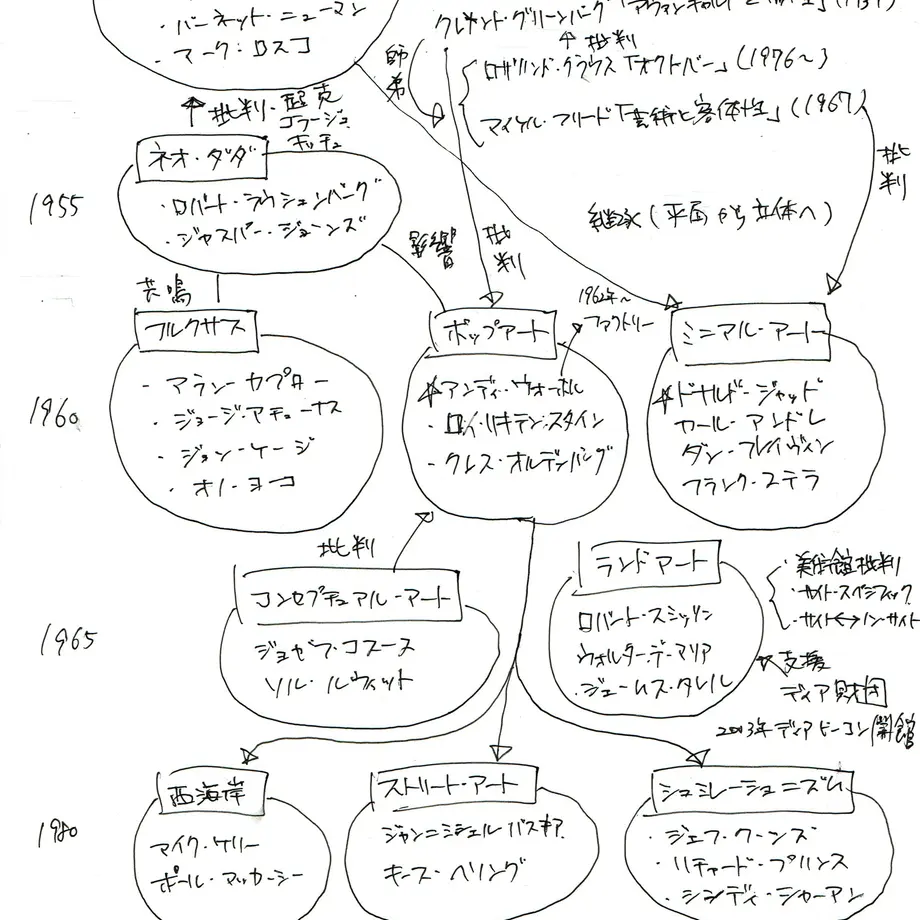 ・バーネット・ニューマン
・マーク・ロスコ
クレメント・グリーンバーグ
師弟
↑批判
ロザリンド・クラウス「オクトバー」(1976～)
マイケル・フリード「芸術と客体性」(1967)
批判
↑批判・超克
コラージュ
キッチュ
ネオ・ダダ
1955
・ロバート・ラウシェンバーグ
・ジャスパー・ジョーンズ
影響
批判
継承(平面から立体へ)
共鳴
フルクサス
ポップアート
1962年～
ファクトリー
ミニマル・アート
1960
・アラン・カプロー
・ジョージ・マチューナス
・ジョン・ケージ
・オノ・ヨーコ
アンディ・ウォーホル
・ロイ・リキテンスタイン
・クレス・オルデンバーグ
ドナルド・ジャッド
カール・アンドレ
ダン・フレイヴィン
フランク・ステラ
批判
コンセプチュアル・アート
ランドアート
・美術館批判
・サイト・スペシフィック
・サイト↔ノン・サイト
1965
ジョゼフ・コスース
ソル・ルウィット
ロバート・スミッソン
ウォルター・デ・マリア
・ジェームス・タレル
支援
ディア財団
2003年ディアビーコン開館
西海岸
ストリート・アート
シュミレーショニズム
1980
マイク・ケリー
ポール・マッカーシー
ジャン=ミシェル バスキア
キース・ヘリング
・ジェフ・クーンズ
・リチャード・プリンス
・シンディ・シャーマン